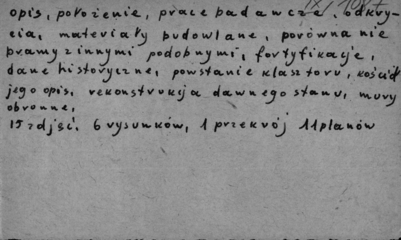 opis, położenie, prace badawcze, odkry-
cia, materiały budowlane, porówna nie
bramy z innymi podobnymi, fortyfikacje,
dane historyczne, powstanie klasztoru, kościół
jego opis, rekonstrukcja dawnego stanu, mury
obronne,
15 zdjęć, 6 rysunków, 1 przekrój 11 planów